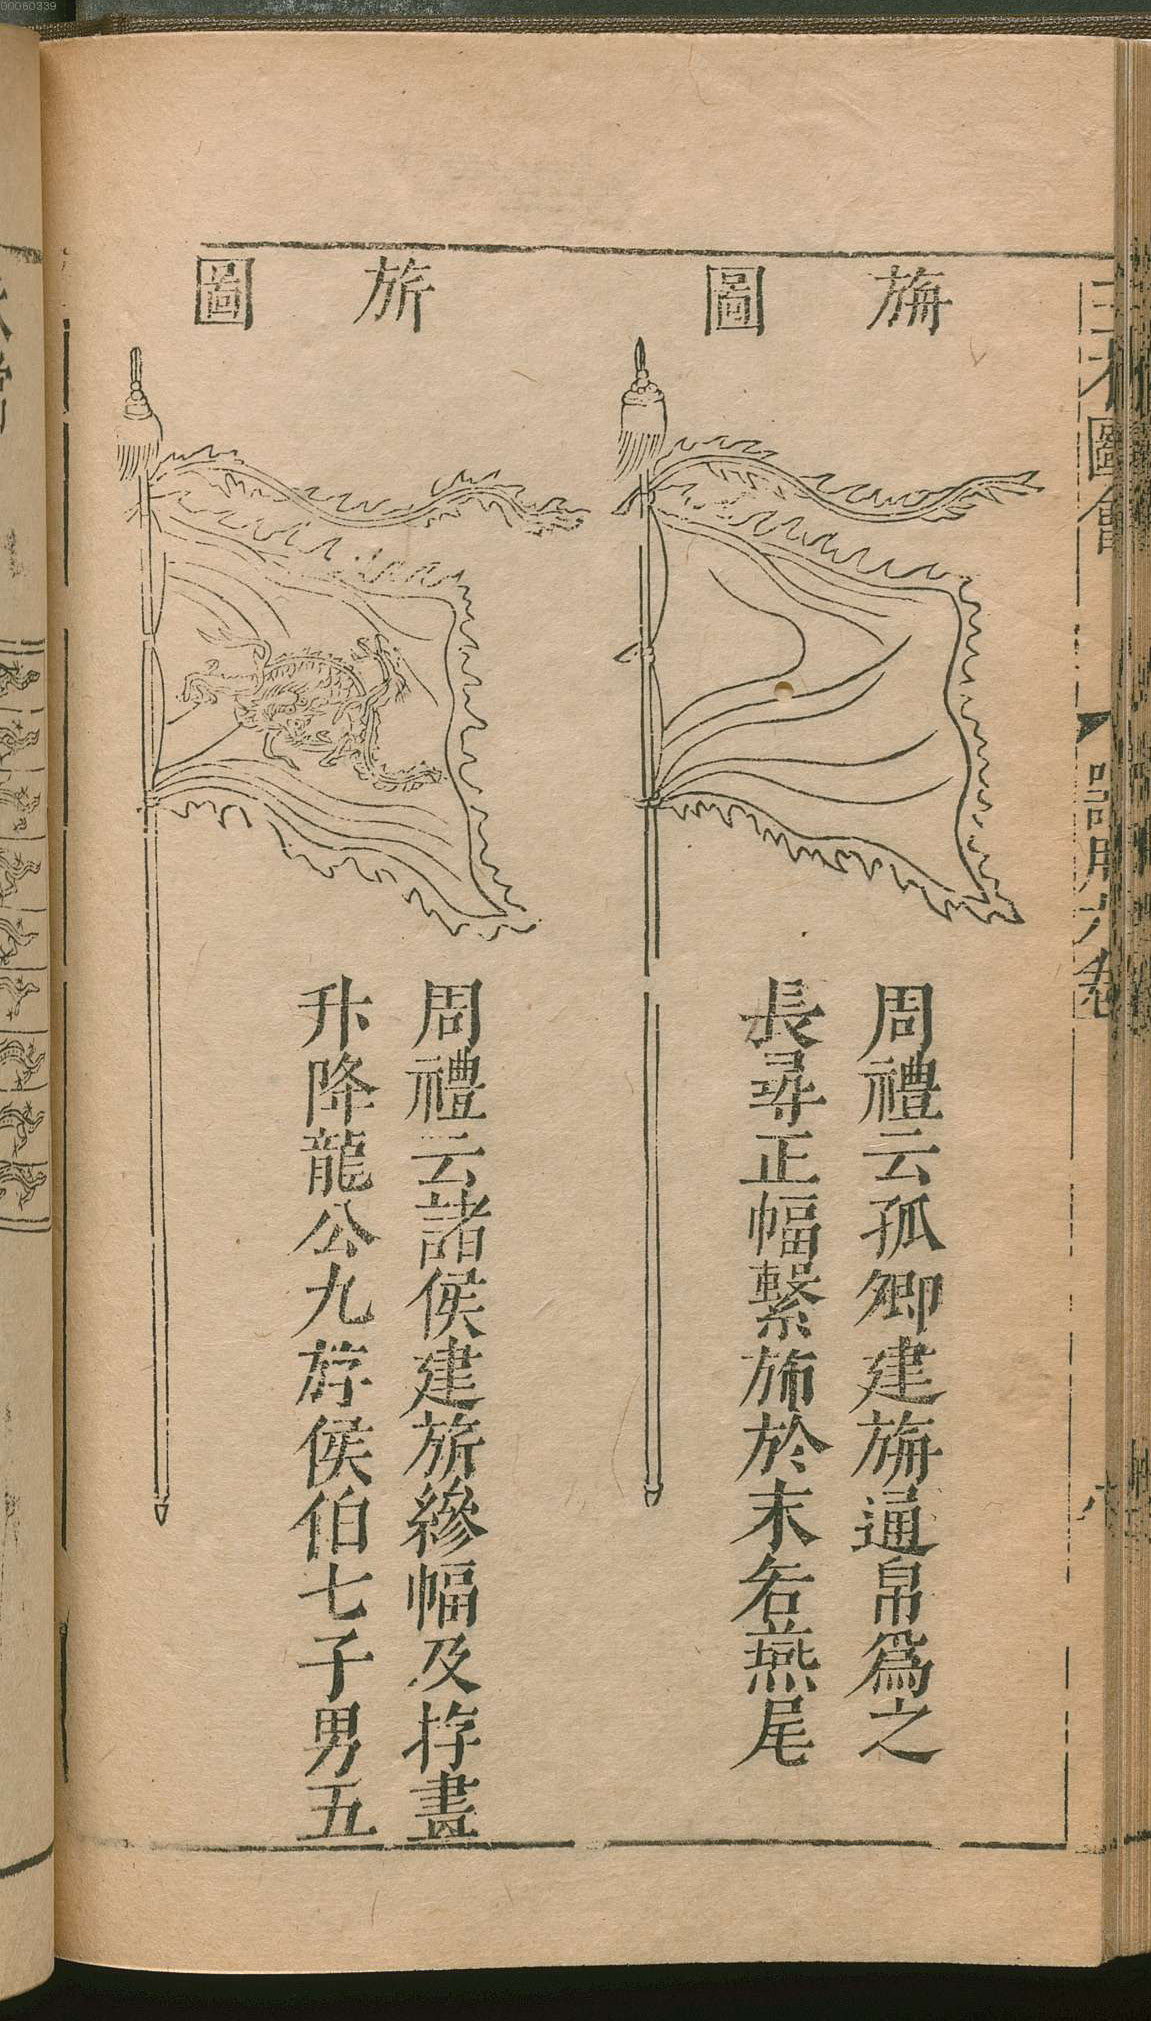 00060339
三才圖會
器用六卷
六
旃
圖
周禮云孤卿建旃通帛爲之
長尋正幅繫斾於末若燕尾
旂
圖
周禮云諸侯建旂縿幅及斿畫
升降龍公九斿侯伯七子男五